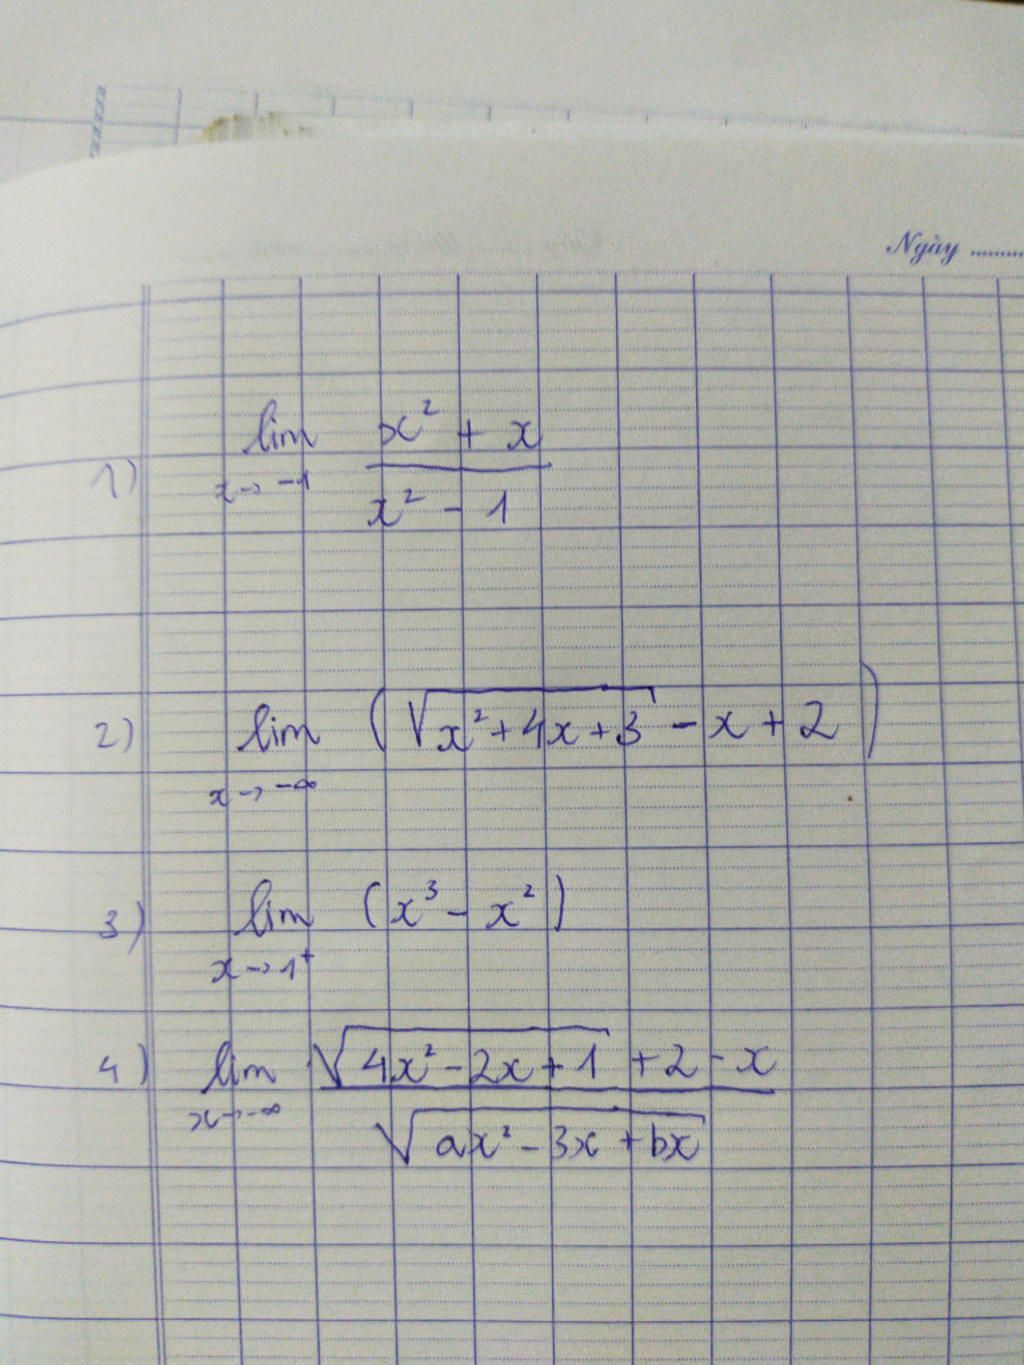 Ngày ..........
1) lim x→-1 (x² + x)/(x² - 1)
2) lim x→-∞ (√(x²+4x+3) - x + 2)
3) lim x→1⁺ (x³ - x²)
4) lim x→-∞ (√(4x²-2x+1) + 2 - x)/√(ax² - 3x + bx)